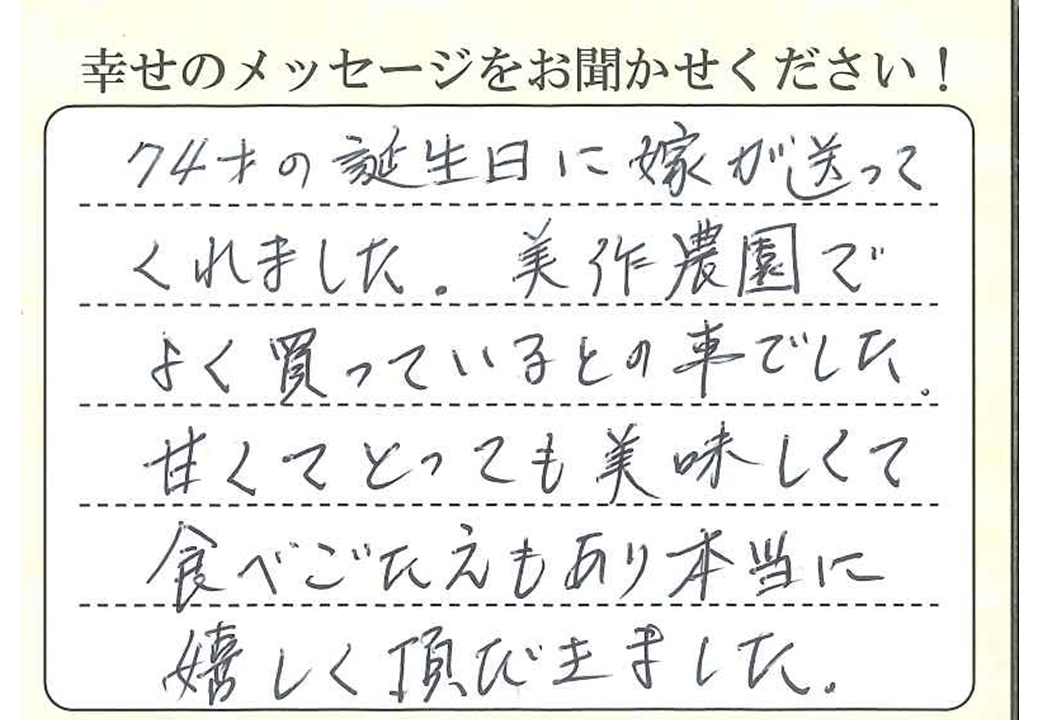 幸せのメッセージをお聞かせください!
74才の誕生日に嫁が送って
くれました。美作農園で
よく買っているとの車でした。
甘くてとっても美味しくて
食べごたえもあり本当に
嬉しく頂だきました。